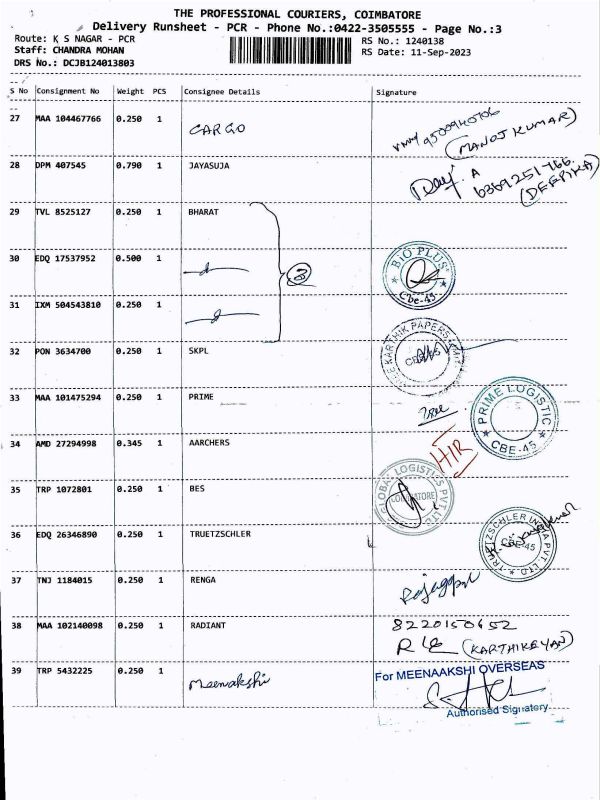 THE PROFESSIONAL COURIERS, COIMBATORE
Delivery Runsheet - PCR - Phone No.:0422-3505555 - Page No.:3
Route: K S NAGAR - PCR
RS No.: 1240138
Staff: CHANDRA MOHAN
RS Date: 11-Sep-2023
DRS No.: DCJB124013803
S No Consignment No Weight PCS Consignee Details Signature
27 MAA 104467766 0.250 1 CARGO
(MANOJ KUMAR)
28 DPM 407545 0.790 1 JAYASUJA
6369251766
(DEEPIKA)
29 TVL 8525127 0.250 1 BHARAT
30 EDQ 17537952 0.500 1
3
BIO PLUS
Cbe-45
31 IXM 504543810 0.250 1
32 PON 3634700 0.250 1 SKPL
KARTHIK PAPERS
33 MAA 101475294 0.250 1 PRIME
PRIME LOGISTIC
CBE-45
34 AMD 27294998 0.345 1 AARCHERS
HIR
35 TRP 1072801 0.250 1 BES
LOGISTICS PVT LTD
COIMBATORE
36 EDQ 26346890 0.250 1 TRUETZSCHLER
TRUETZSCHLER INDIA PVT. LTD
CBE-45
37 TNJ 1184015 0.250 1 RENGA
Rajagopal
38 MAA 102140098 0.250 1 RADIANT
8220150652
(KARTHIKEYAN)
39 TRP 5432225 0.250 1 Meenakshi
For MEENAAKSHI OVERSEAS
Authorised Signatory